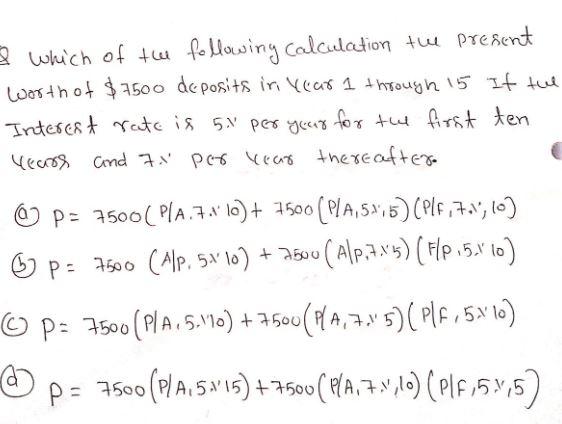 Q which of the following calculation the present
worth of $7500 deposits in Year 1 through 15 If the
Interest rate is 5% per year for the first ten
Years and 7% per Year thereafter.
(a) P = 7500(P/A.7.% 10) + 7500(P/A,5%,5)(P/F,7.%,10)
(b) P = 7500 (A/P. 5% 10) + 7500(A/P,7%5)(F/P,5.% 10)
(c) P = 7500(P/A,5.%10) + 7500(P/A,7.% 5)(P/F,5% 10)
(d) P = 7500(P/A,5%15) + 7500(P/A,7%,10)(P/F,5%,5)